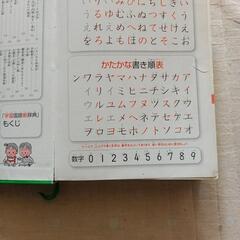 いりみひにちしきい
うるゆむふぬつすくう
えれめへねてせけえ
をろよもほのとそこお
かたかな書き順表
ンワラヤマハナタサカア
リ イ ミ ヒ ニ チ シ キ イ
ウ ル ユ ム フ ヌ ツ ス ク ウ
エ レ エ メ ヘ ネ テ セ ケ エ
ヲ ロ ヨ モ ホ ノ ト ソ コ オ
数字 0 1 2 3 4 5 6 7 8 9
もくじ